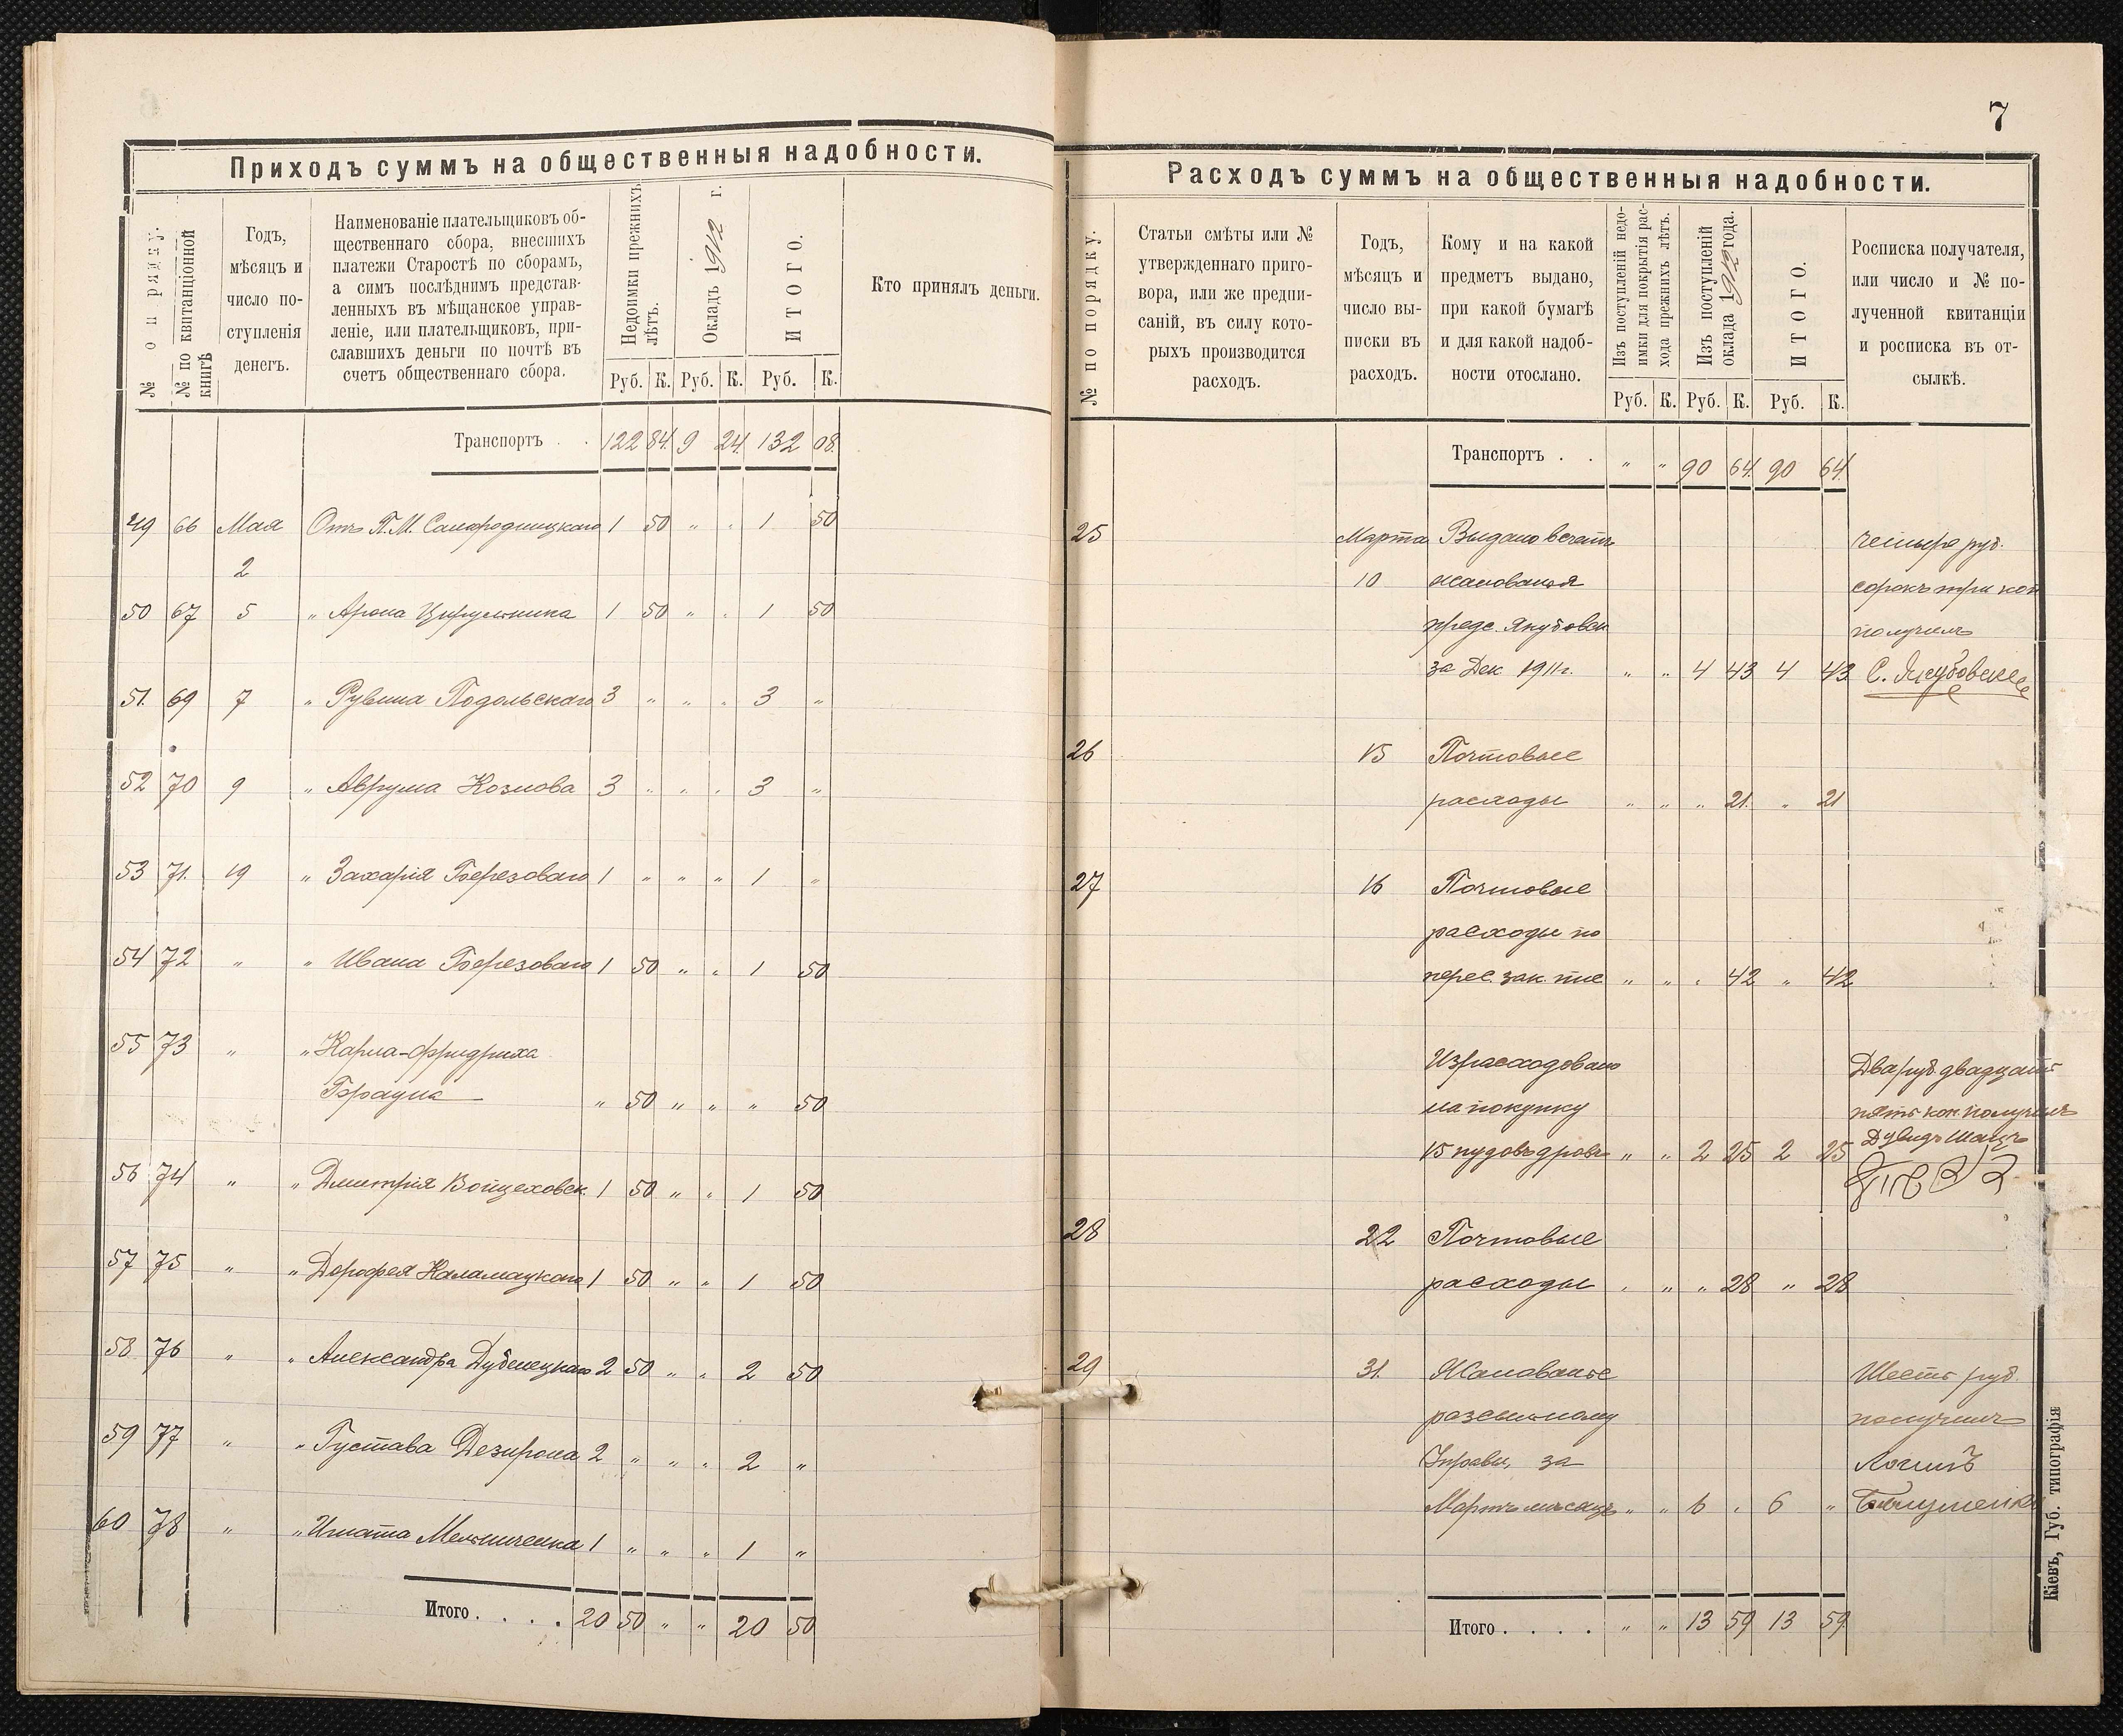 Приходъ суммъ на общественныя надобности.
№ по рядку.
№ по квитанціонной книгѣ
Годъ,
мѣсяцъ и
число по-
ступленія
денегъ.
Наименованіе плательщиковъ об-
щественнаго сбора, внесшихъ
платежи Старостѣ по сборамъ,
а симъ послѣднимъ представ-
ленныхъ въ мѣщанское управ-
леніе, или плательщиковъ, при-
славшихъ деньги по почтѣ въ
счетъ общественнаго сбора.
Недоимки прежнихъ
лѣтъ.
Окладъ 1912 г.
ИТОГО.
Кто принялъ деньги.
Руб. К. Руб. К. Руб. К.
Транспортъ . . 122 84. 9 24. 132 08.
49 66 Мая Отъ П.М. 1 50 " " 1 50
2
50 67 5 " Арона Цирульника 1 50 " " 1 50
51. 69 7 " Рувина Подольскаго 3 " " " 3 "
52 70 9 " Аврума Козлова 3 " " " 3 "
53 71. 19 " Захарія Березоваго 1 " " " 1 "
54 72 " " Ивана Березоваго 1 50 " " 1 50
55 73 " " Карла-Фридриха
Брауна " 50 " " " 50
56 74 " " Дмитрія Войцеховск. 1 50 " " 1 50
57 75 " " Дорофея Каламацкаго 1 50 " " 1 50
58 76 " " Александра Дубенецкаго 2 50 " " 2 50
59 77 " " Густава Дезирона 2 " " " 2 "
60 78 " " Игната Мельниченка 1 " " " 1 "
Итого . . . . 20 50 " " 20 50
7
Расходъ суммъ на общественныя надобности.
№ по порядку.
Статьи смѣты или №
утвержденнаго приго-
вора, или же предпи-
саній, въ силу кото-
рыхъ производится
расходъ.
Годъ,
мѣсяцъ и
число вы-
писки въ
расходъ.
Кому и на какой
предметъ выдано,
при какой бумагѣ
и для какой надоб-
ности отослано.
Изъ поступленій недо-
имки для покрытія рас-
хода прежнихъ лѣтъ.
Изъ поступленій
оклада 1912 года.
ИТОГО.
Росписка получателя,
или число и № по-
лученной квитанціи
и росписка въ от-
сылкѣ.
Руб. К. Руб. К. Руб. К.
Транспортъ . . " " 90 64. 90 64.
25 Марта Выдано въ счетъ четыре руб.
10 жалованья сорокъ три коп
предс. Якубовск получилъ
за Дек 1911 г. " " 4 43 4 43 С. Якубовскій
26 15 Почтовые
расходы " " " 21. " 21
27 16 Почтовые
расходы по
перес. зак. пис " " " 42 " 42
Израсходовано Два руб. двадцать
на покупку пять коп получилъ
15 пудовъ дровъ " " 2 25 2 25 Дувидъ Шацъ
28 22 Почтовые
расходы " " " 28 " 28
29 31. Жалованье Шесть руб.
разсыльному получилъ
Управы, за
Мартъ мѣсяцъ " " 6 " 6 "
Итого . . . . " " 13 59 13 59
Кіевъ, Губ. типографія